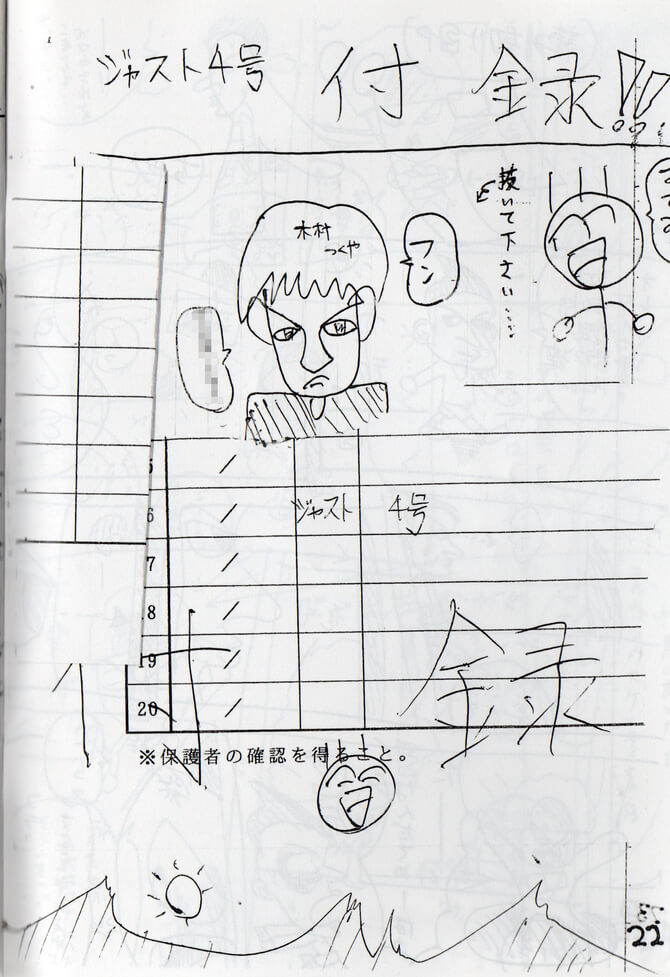 ジャスト4号 付録!!
抜いて下さい……
木村
つくや
フン
6 ジャスト 4号
7
18
19
20
付録
※保護者の確認を得ること。
22